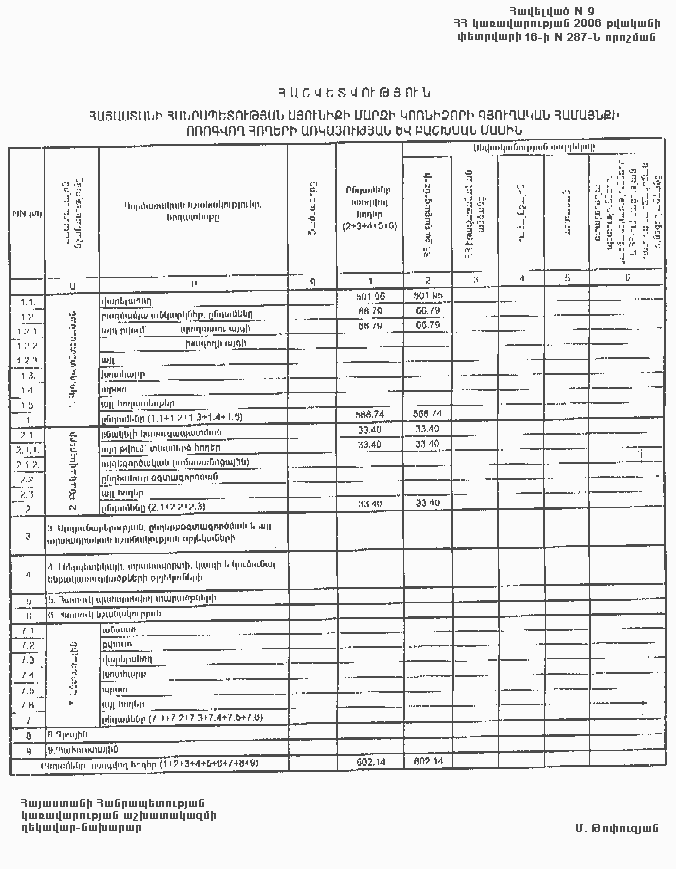 Հավելված N 9
ՀՀ կառավարության 2006 թվականի
փետրվարի 16-ի N 287-Ն որոշման
Հ Ա Շ Վ Ե Տ Վ ՈՒ Թ Յ ՈՒ Ն
ՀԱՅԱՍՏԱՆԻ ՀԱՆՐԱՊԵՏՈՒԹՅԱՆ ՍՅՈՒՆԻՔԻ ՄԱՐԶԻ ԿՈՌՆԻՁՈՐԻ ԳՅՈՒՂԱԿԱՆ ՀԱՄԱՅՆՔԻ
ՈՌՈԳՎՈՂ ՀՈՂԵՐԻ ԱՌԿԱՅՈՒԹՅԱՆ ԵՎ ԲԱՇԽՄԱՆ ՄԱՍԻՆ
Սեփականության սուբյեկտը
Ընդամենը
ոռոգվող
հողեր
(2+3+4+5+6)
Ա Բ Գ 1 2 3 4 5 6
1.1. վարելահող 501.95 501.95
1.2 բազմամյա տնկարկներ, ընդամենը 66.79 66.79
1.2.1 այդ թվում՝ պտղատու այգի 66.79 66.79
1.2.2 խաղողի այգի
1.2.3 այլ
1.3. խոտհարք
1.4 արոտ
1.5 այլ հողատեսքեր
1 ընդամենը (1.1+1.2+1.3+1.4+1.5) 568.74 568.74
2.1 բնակելի կառուցապատման 33.40 33.40
2.1.1. այդ թվում՝ տնամերձ հողեր 33.40 33.40
2.1.2. այգեգործական (ամառանոցային)
2.2 ընդհանուր օգտագործման
2.3 այլ հողեր
2 ընդամենը (2.1+2.2+2.3) 33.40 33.40
3 3. Արդյունաբերության, ընդերքօգտագործման և այլ
արտադրական նշանակության օբյեկտների
4 4. Էներգետիկայի, տրանսպորտի, կապի և կոմունալ
ենթակառուցվածքների օբյեկտների
5 5. Հատուկ պահպանվող տարածքների
6 6. Հատուկ նշանակության
7.1 անտառ
7.2 թփուտ
7.3 վարելահող
7.4 խոտհարք
7.5 արոտ
7.6 այլ հողեր
7 ընդամենը (7.1+7.2+7.3+7.4+7.5+7.6)
8 8.Ջրային
9 9.Պահուստային
Ընդամենը ոռոգվող հողեր (1+2+3+4+5+6+7+8+9) 602.14 602.14
Հայաստանի Հանրապետության
կառավարության աշխատակազմի
ղեկավար-նախարար Մ. Թոփուզյան